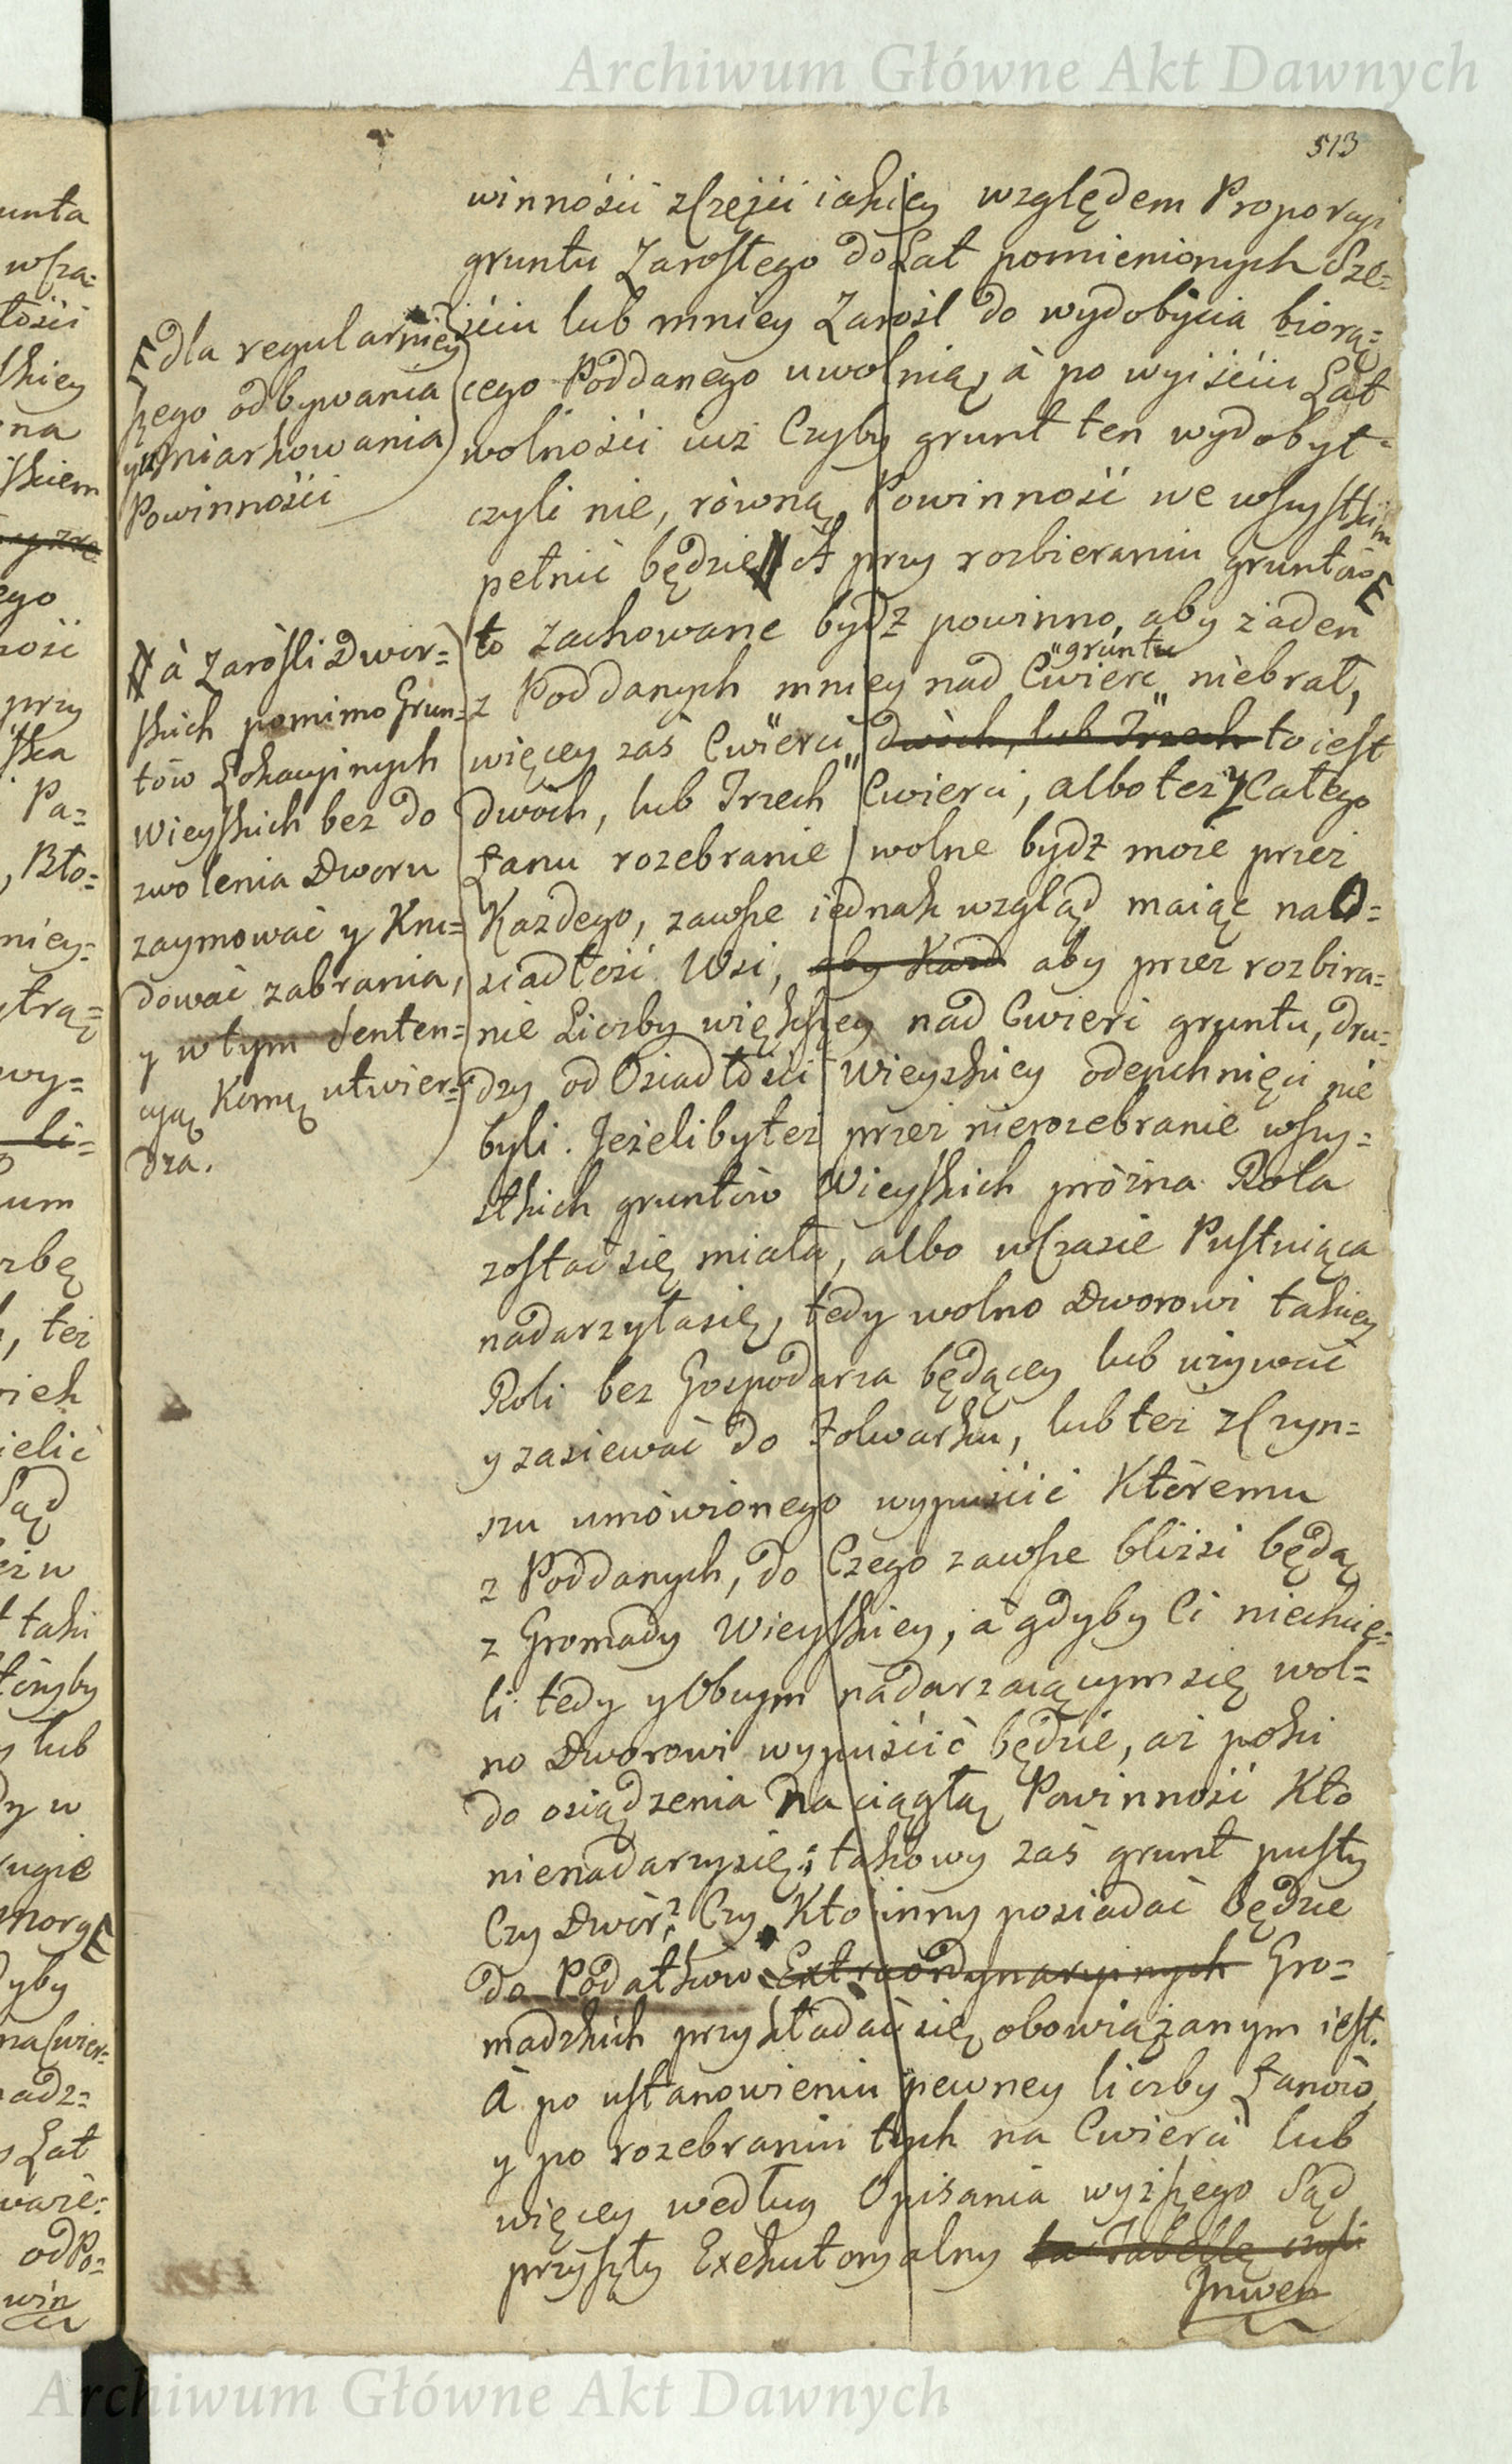 Archiwum Główne Akt Dawnych
513
winności częśći iakiey względem Proporcyi
gruntu Zarosłego do Lat pomienionych Sze=
śćiu lub mniey Zarośl do wydobyċia biorą=
cego Poddanego uwolnią, à po wyiśćiu Lat
wolnośći iuż Czyby grunt ten wydobył
czyli nie, równą Powinność we wszystkim
pełnić będzie # A przy rozbieraniu gruntów E
to zachowane bydź powinno, aby żaden
z Poddanych mniey nad Cwierć "gruntu niebrał,
więcey zaś Cwierci dwóch, lub Trzech to iest
dwóch, lub Trzech Cwierci, albo też y Całego
Łanu rozebranie wolne bydź może przez
Kazdego, zawsze iednak wzgląd maiąc na O=
siadłość Wsi, aby Kazd aby przez rozbira=
nie Liczby większey nad Cwierć gruntu, dru=
dzy od Osiadłości Wieyskiey odepchnięci nie
byli. Jeżeliby też przez nierozebranie wszy=
stkich gruntów Wieyskich próżna Rola
zostać się miała, albo w Czasie Pustuiąca
nadarzyła się, tedy wolno Dworowi takiey
Roli bez Gospodarza będącey lub używać
y zasiewać do Folwarku, lub też z Czyn=
szu umówionego wypuścić Któremu
z Poddanych, do Czego zawsze bliżsi będą
z Gromady Wieyskiey, à gdyby Ci niechcie=
li tedy y Obcym nadarzaiącym się wol=
no Dworowi wypuścić będzie, aż poki
do osiądzenia na ciągłą Powinność Kto
nienadarzy się; takowy zaś grunt pusty
Czy Dwór? Czy Kto inny posiadać będzie
do Podatków Extraordynaryinych Gro=
madzkich przykładać się obowiązanym iest.
À po ustanowieniu pewney liczby Łanów
y po rozebraniu tych na Cwierci lub
więcey według Opisania wyższego Sąd
przyszły Exekutoryalny ta Tabellę czyli
Jnwen
E dla regularniey
szego odbywania
y umiarkowania
Powinnośći
# à Zarośli Dwor=
skich pomimo Grun=
tów Lokacyinych
Wieyskich bez do
zwolenia Dworu
zaymować y Knu=
dować zabrania,
y w tym Senten=
cyą Komą utwier=
dza.
unta
wsza=
łości
skiey
na
skiem
ego
ność
przy
Pa=
, Bło=
niey=
ytrą=
wy=
li=
um
zbę
też
ielić
Sąd
taki
tóryby
lub
dy w
ugie
morg E
dyby
adz=
Lat
od Po=
win
Archiwum Główne Akt Dawnych